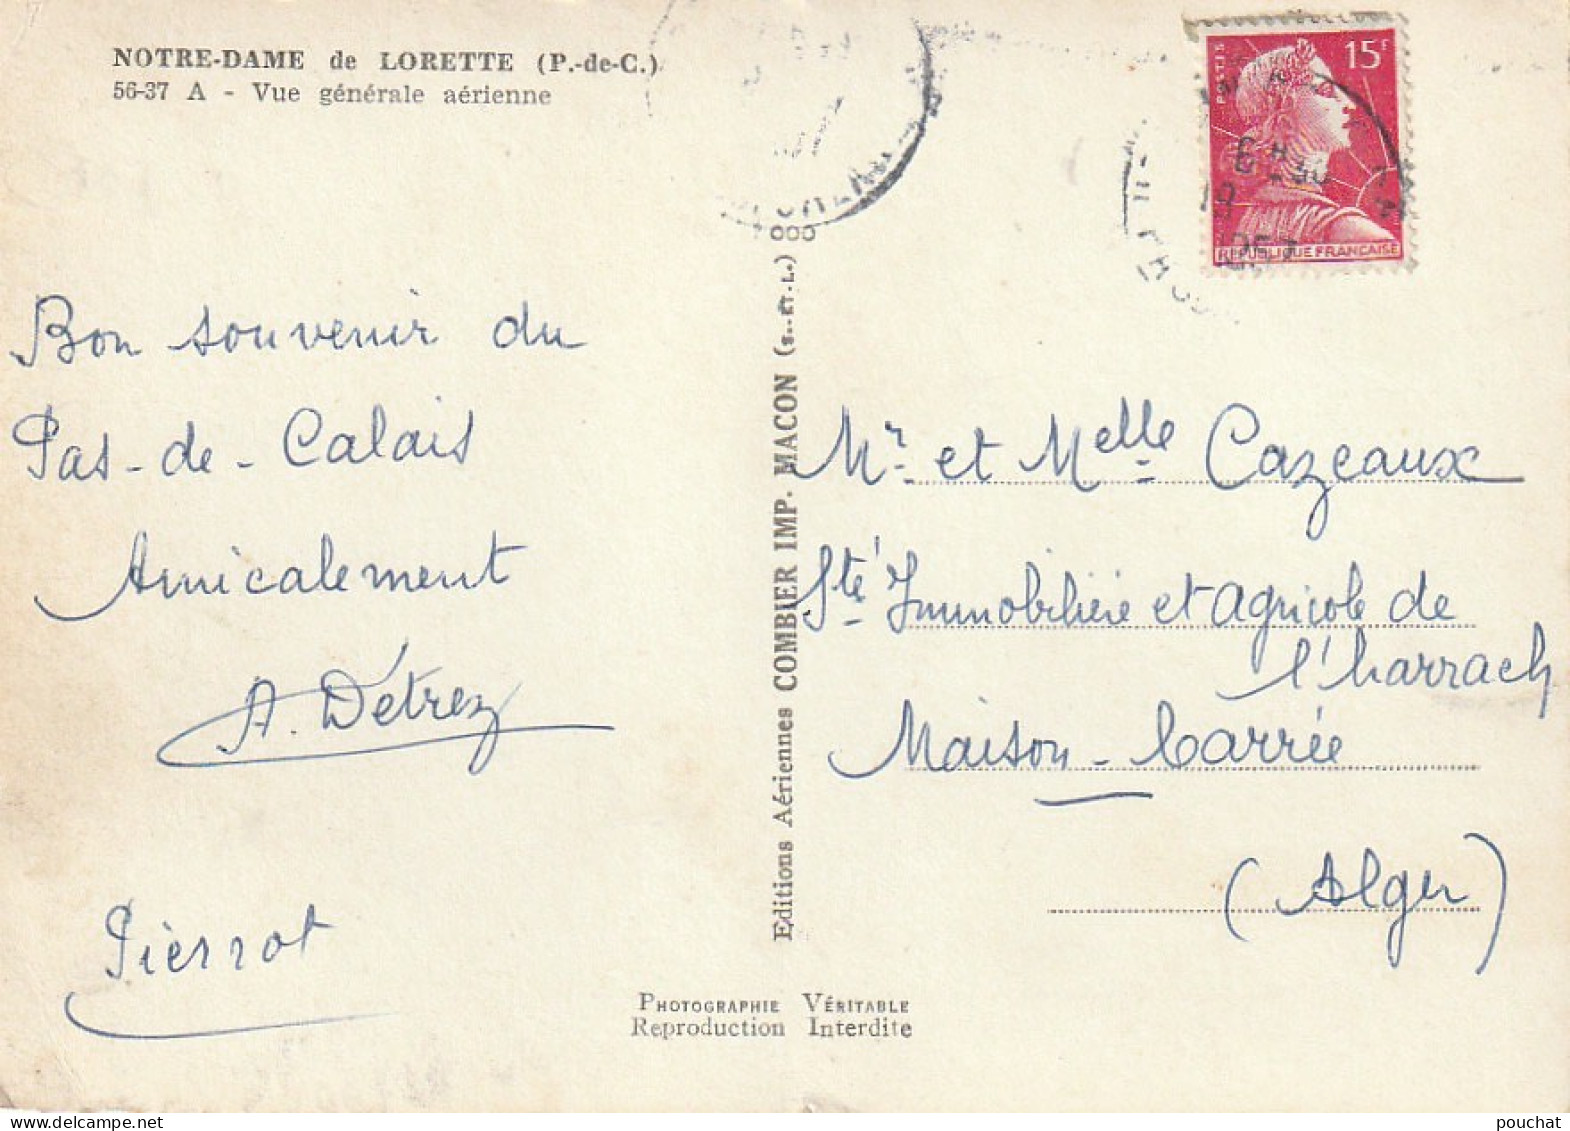 NOTRE-DAME de LORETTE (P.-de-C.)
56-37 A - Vue générale aérienne
POSTES
15F
REPUBLIQUE FRANÇAISE
Bon souvenir du
Pas-de-Calais
Amicalement
A. Détrez
Pierrot
Editions Aériennes COMBIER IMP. MACON (S.-ET-L.)
Mr et Melle Cazeaux
Sté Immobilière et agricole de
l'harrach
Maison-Carrée
(Alger)
PHOTOGRAPHIE VÉRITABLE
Reproduction Interdite
pouchat